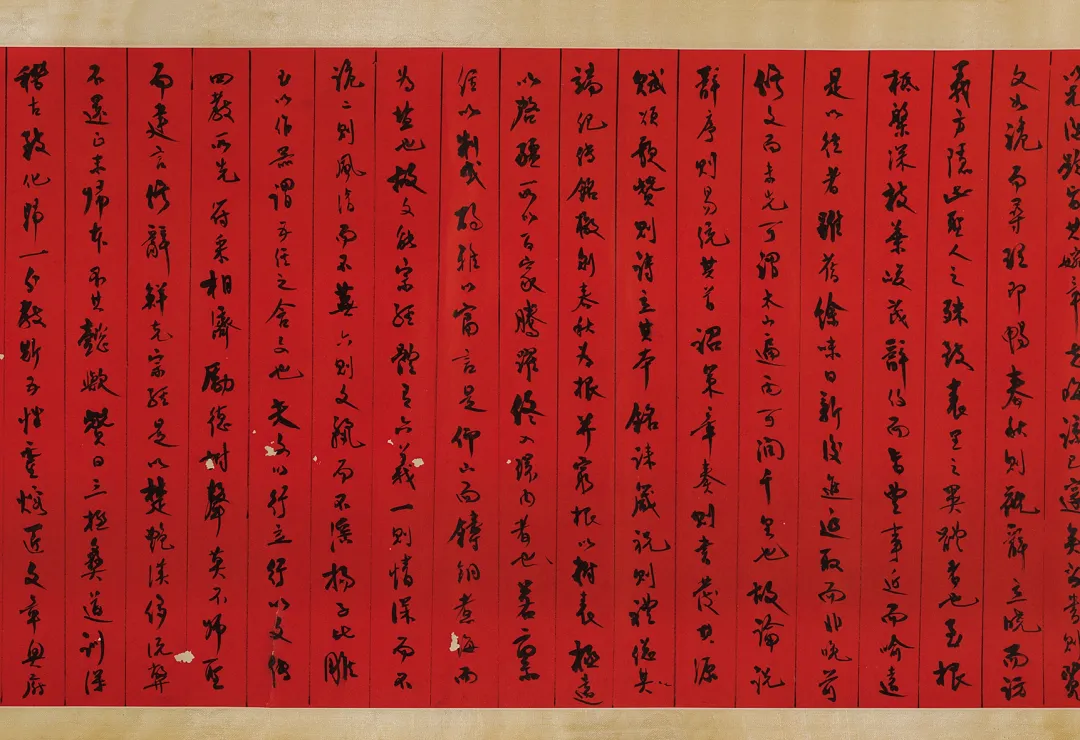 以先後顯旨其婉章志晦諒已邃矣尚書則覽
文如詭而尋理即暢春秋則觀辭立曉而訪
義方隱此聖人之殊致表裏之異體者也至根
柢槃深枝葉峻茂辭約而旨豐事近而喻遠
是以往者雖舊餘味日新後進追取而非晚前
修文而未先可謂太山遍雨可潤千里也故論說
辭序則易統其首詔策章奏則書發其源
賦頌歌贊則詩立其本銘誄箴祝則禮總其
端紀傳銘檄則春秋為根并窮根以樹表極遠
以啓疆所以百家騰躍終入環內者也若稟
經以制式酌雅以富言是仰山而鑄銅煮海而
為鹽也故文能宗經體有六義一則情深而不
詭二則風清而不蕪六則文麗而不淫揚子比雕
玉以作器謂五經之含文也夫文以行立行以文傳
四教所先符采相濟勵德樹聲莫不師聖
而建言修辭鮮克宗經是以楚艷漢侈流弊
不還正末歸本不其懿歟贊曰三極彝道訓深
稽古致化歸一分教斯五性靈熔匠文章奧府